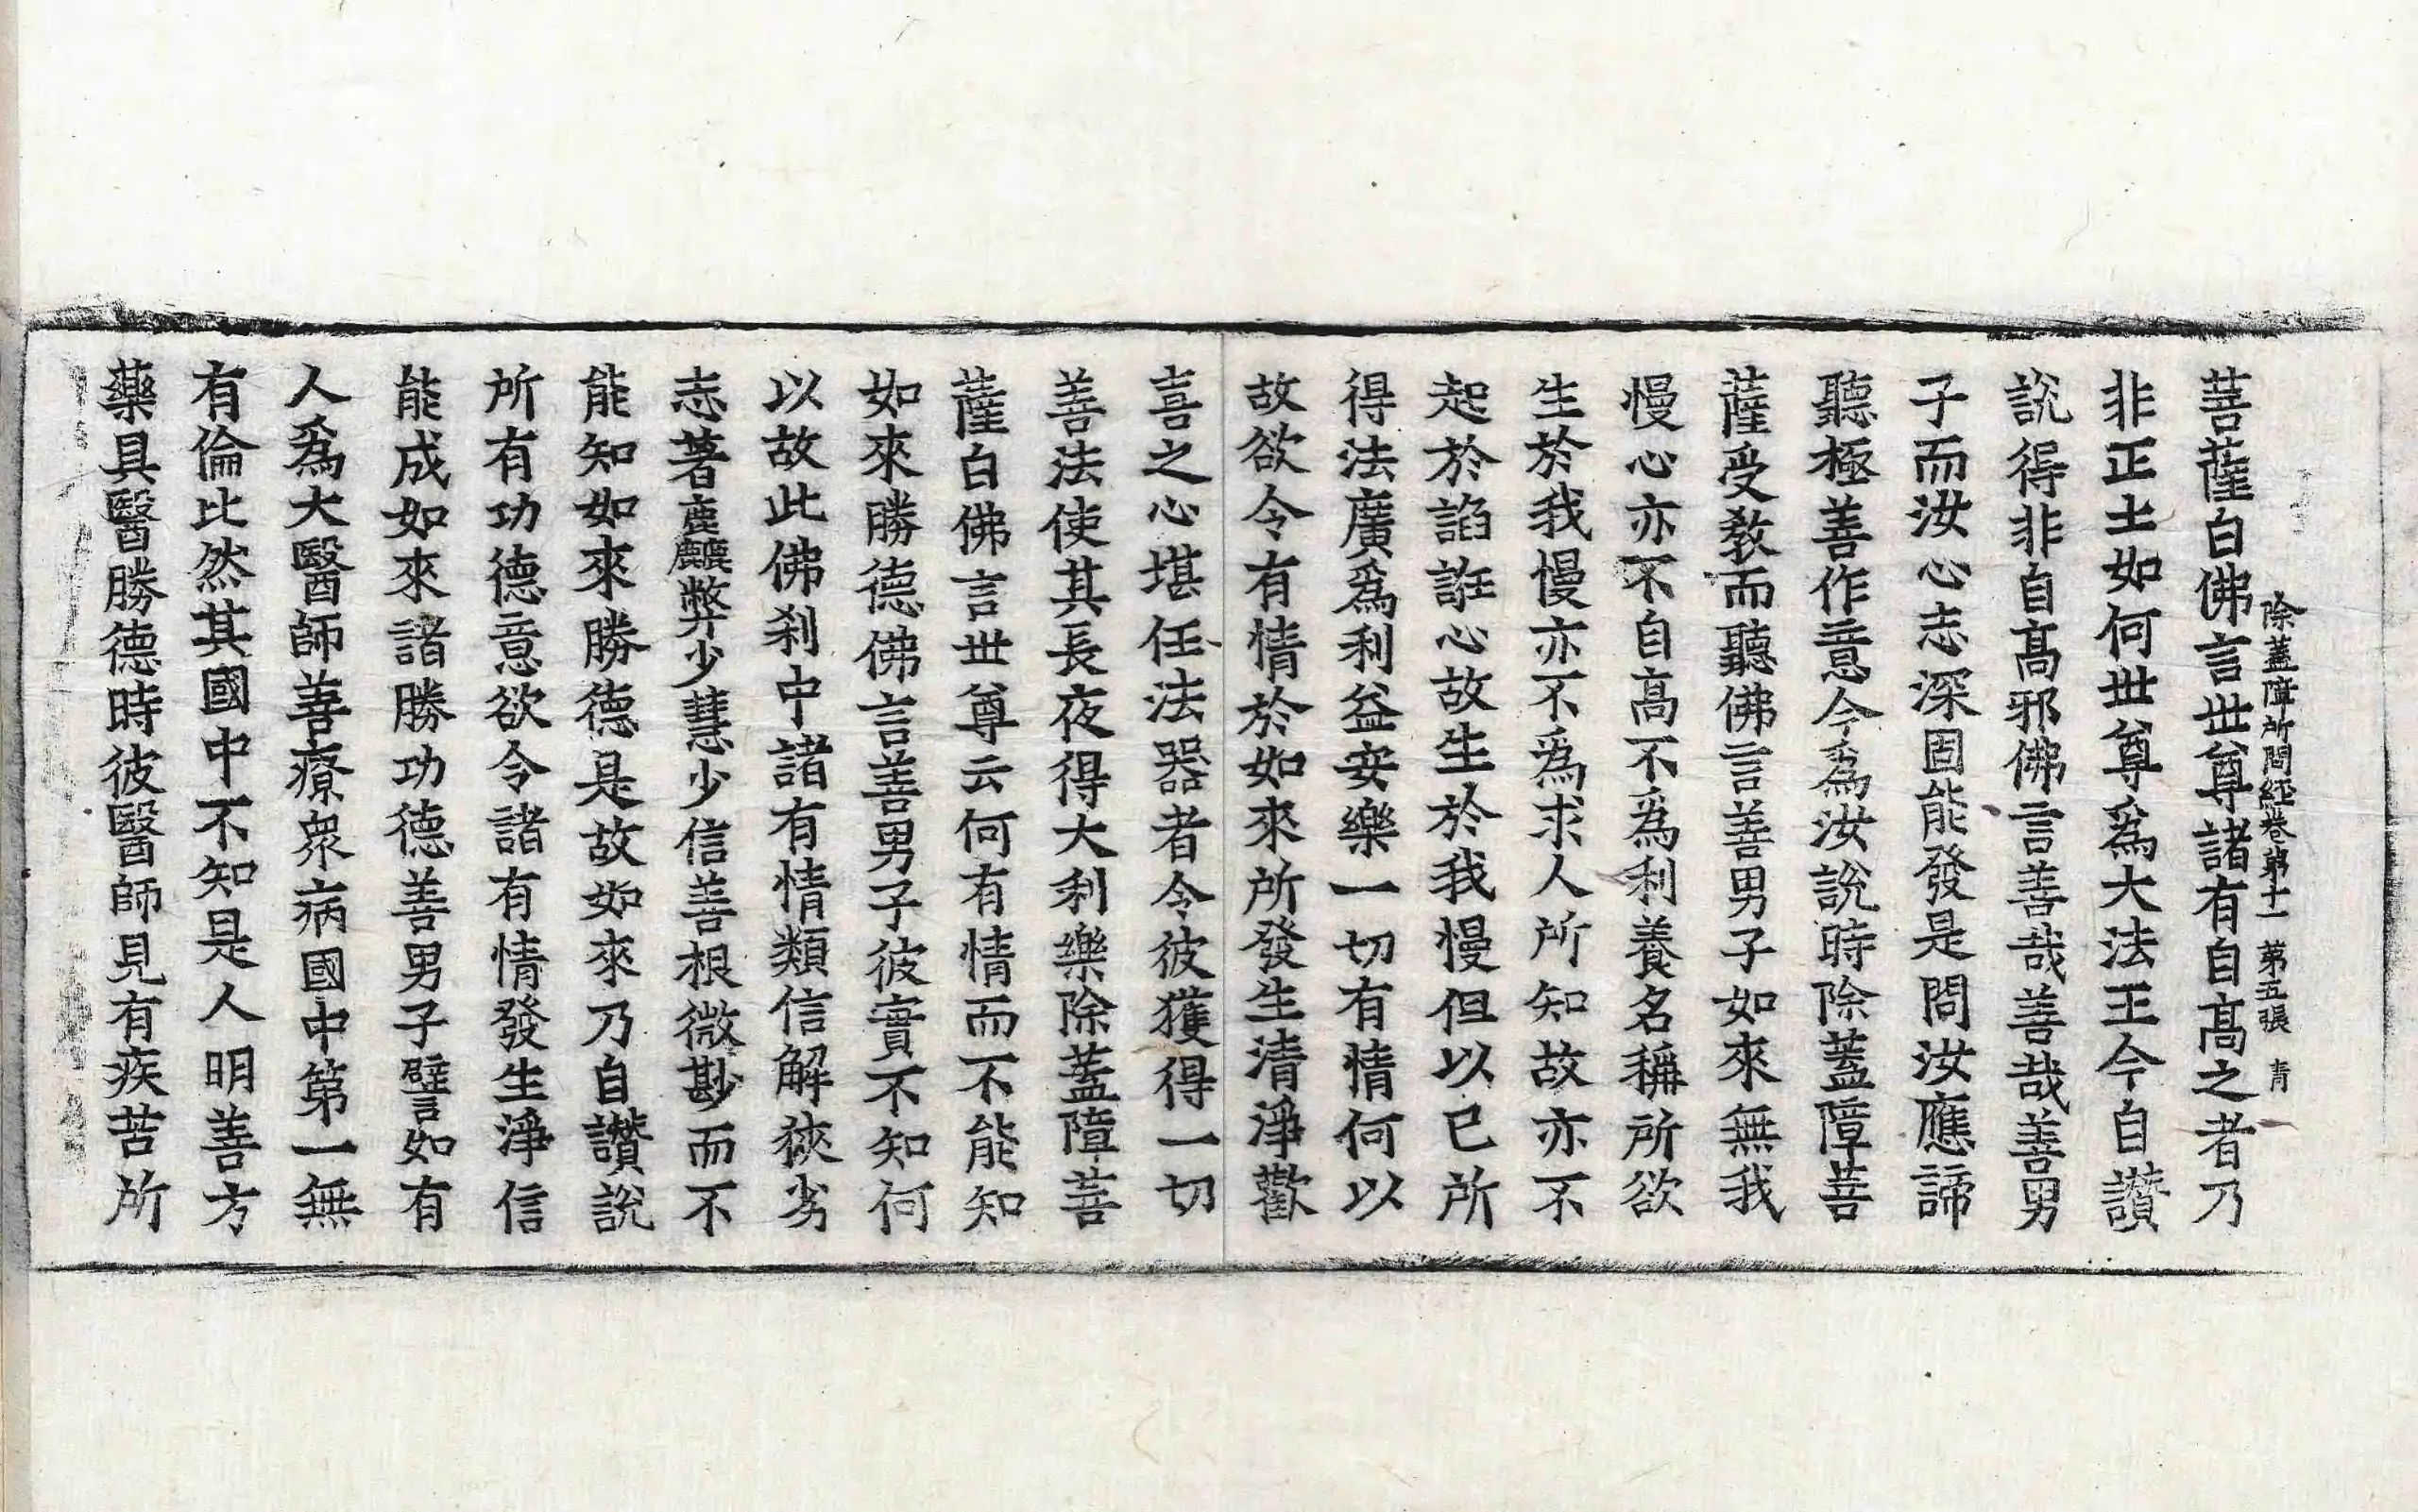 除蓋障所問經卷第十一 第五張 青
菩薩白佛言世尊諸有自高之者乃
非正士如何世尊爲大法王今自讃
說得非自高邪佛言善哉善哉善男
子而汝心志深固能發是問汝應諦
聽極善作意今爲汝說時除蓋障菩
薩受教而聽佛言善男子如來無我
慢心亦不自高不爲利養名稱所欲
生於我慢亦不爲求人所知故亦不
起於諂誑心故生於我慢但以已所
得法廣爲利益安樂一切有情何以
故欲令有情於如來所發生清淨歡
喜之心堪任法器者令彼獲得一切
善法使其長夜得大利樂除蓋障菩
薩白佛言世尊云何有情而不能知
如來勝德佛言善男子彼實不知何
以故此佛刹中諸有情類信解狹劣
志著麁麤弊少慧少信善根微尠而不
能知如來勝德是故如來乃自讃說
所有功德意欲令諸有情發生淨信
能成如來諸勝功德善男子譬如有
人爲大醫師善療衆病國中第一無
有倫比然其國中不知是人明善方
藥具醫勝德時彼醫師見有疾苦所